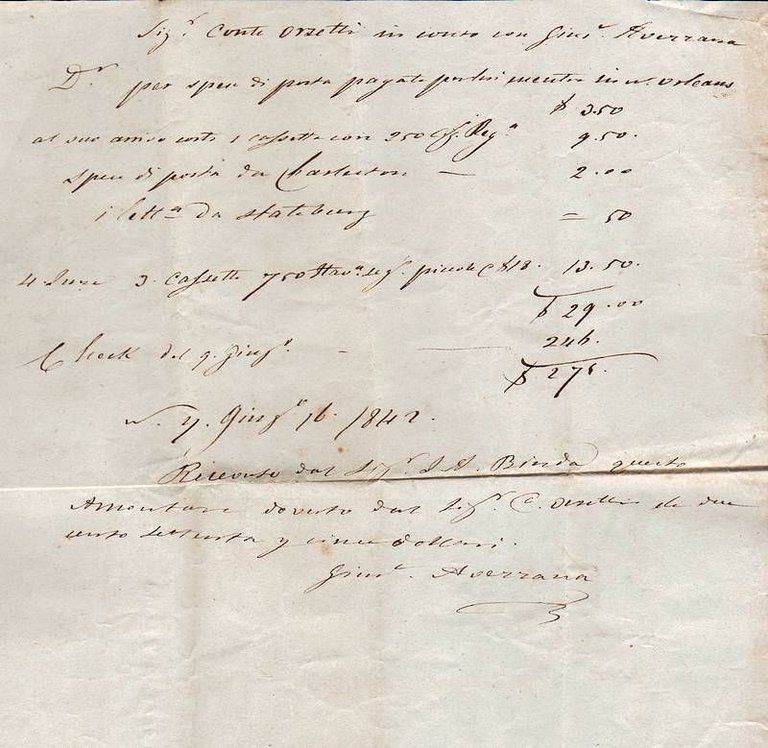 Sig.r Conte Orsetti in conto con Gius.e Avezzana
D.r per spese di posta pagate per lui mentre in N. Orleans
$ 3.50
al suo arrivo costo 1 cassetta con 250 Reg.a 9.50.
spese di posta da Charleston — 2.00
1 lett.a da Stateburg = 50
4 3 Cassette 750 piccole @ $18. 13.50.
$ 29.00
Check del 9. Giug.o — 246.
$ 275.
N. Y. Giug.o 16. 1842.
Ricevuto dal Sig.r I. A. Binda questo
Amontare dovuto dal Sig.r C. Orsetti de due
cento settenta y cinco dollari.
Gius.e Avezzana